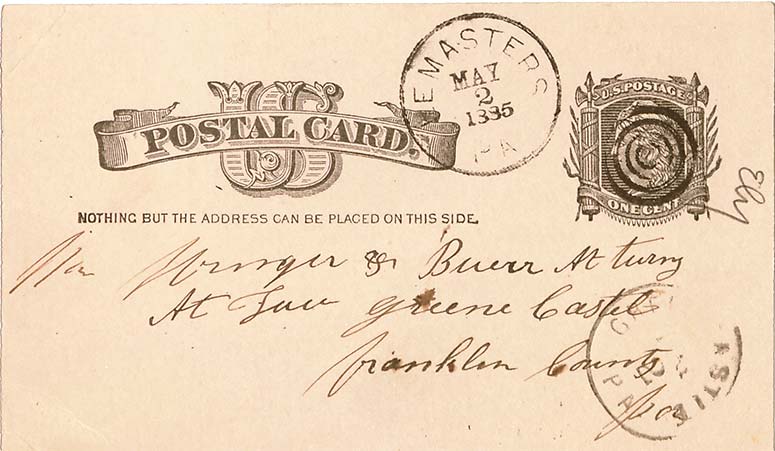 US
POSTAL CARD.
EMASTERS
MAY
2
1885
PA
U.S. POSTAGE
ONE CENT
NOTHING BUT THE ADDRESS CAN BE PLACED ON THIS SIDE.
& Buerr At turny
At Law Greene Castel
Franklin County
Pa
PA